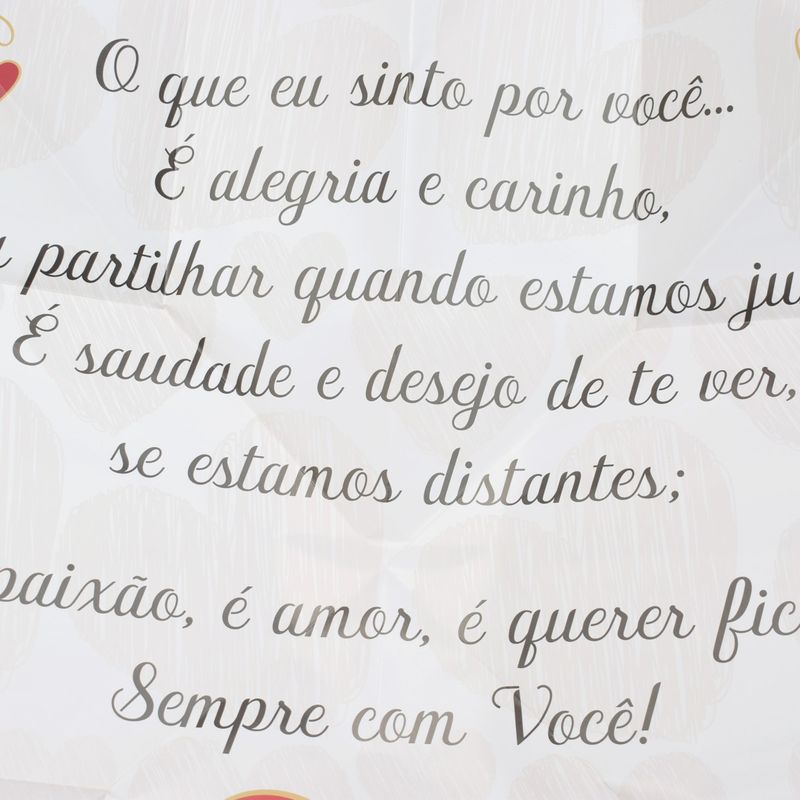 O que eu sinto por você...
É alegria e carinho,
partilhar quando estamos
É saudade e desejo de te ver,
se estamos distantes;
paixão, é amor, é querer
Sempre com Você!